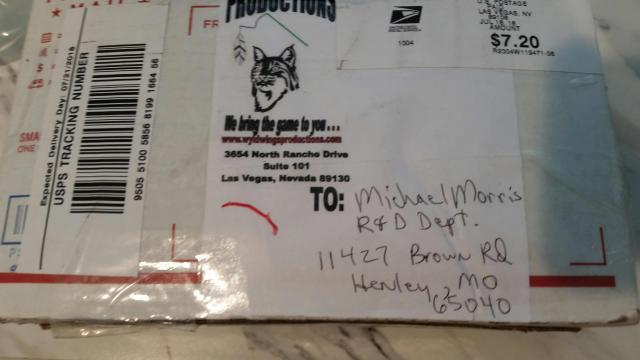 PRODUCTIONS
We bring the game to you...
www.wyldwingsproductions.com
3654 North Rancho Drive
Suite 101
Las Vegas, Nevada 89130
TO:
Michael Morris
R&D Dept.
11427 Brown Rd
Henley, MO
65040
Expected Delivery Day: 07/21/2018
USPS TRACKING NUMBER
9505 5100 5856 8199 1664 56
UNITED STATES
POSTAL SERVICE
1004
U.S. POSTAGE
LAS VEGAS, NV
AMOUNT
$7.20
R2304W119471-06
FR
SMA
ONE